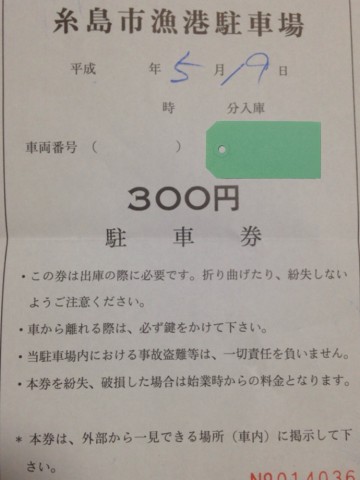 糸島市漁港駐車場
平成 年 5 月 19 日
時 分入庫
車両番号 ( )
300円
駐車券
・この券は出庫の際に必要です。折り曲げたり、紛失しない
ようご注意ください。
・車から離れる際は、必ず鍵をかけて下さい。
・当駐車場内における事故盗難等は、一切責任を負いません。
・本券を紛失、破損した場合は始業時からの料金となります。
* 本券は、外部から一見できる場所（車内）に掲示して下
さい。
№014036